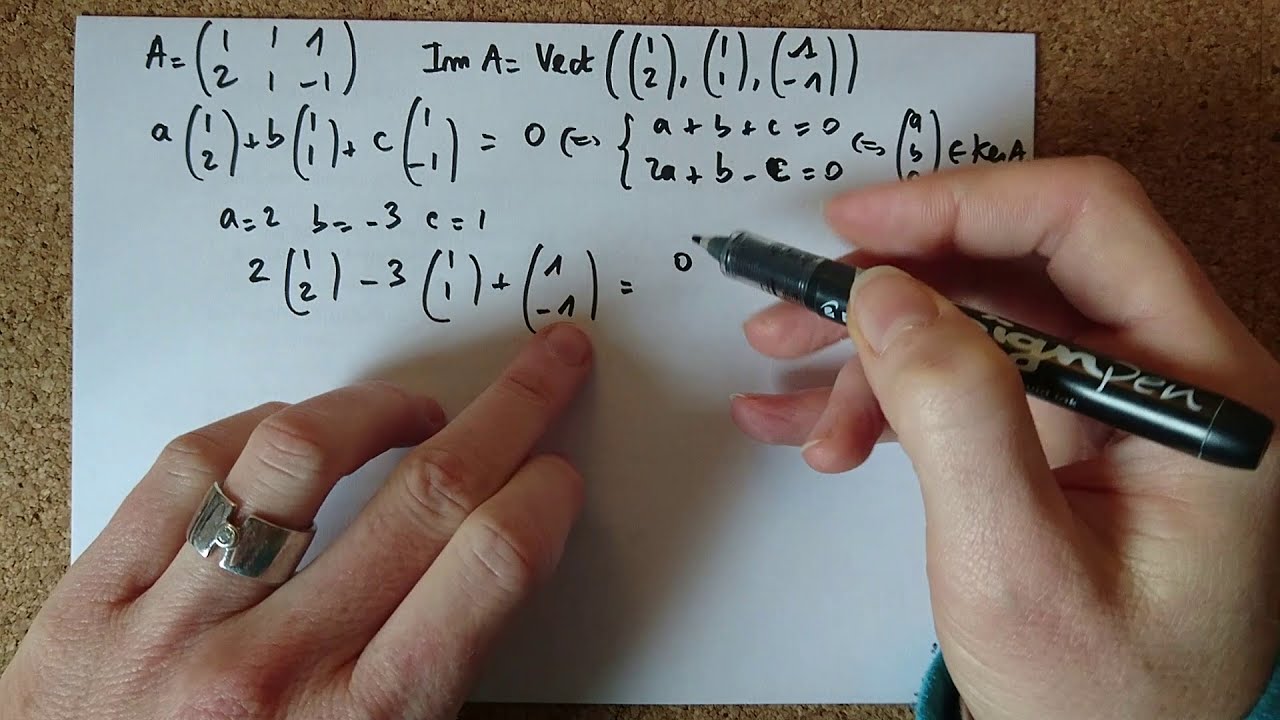 A = ( 1 1 1 ; 2 1 -1 ) Im A = Vect ( ( 1 ; 2 ), ( 1 ; 1 ), ( 1 ; -1 ) )
a ( 1 ; 2 ) + b ( 1 ; 1 ) + c ( 1 ; -1 ) = 0 <=> { a + b + c = 0 ; 2a + b - c = 0 <=> ( a ; b ; c ) ∈ Ker A
a = 2 b = -3 c = 1
2 ( 1 ; 2 ) - 3 ( 1 ; 1 ) + ( 1 ; -1 ) = 0
signpen